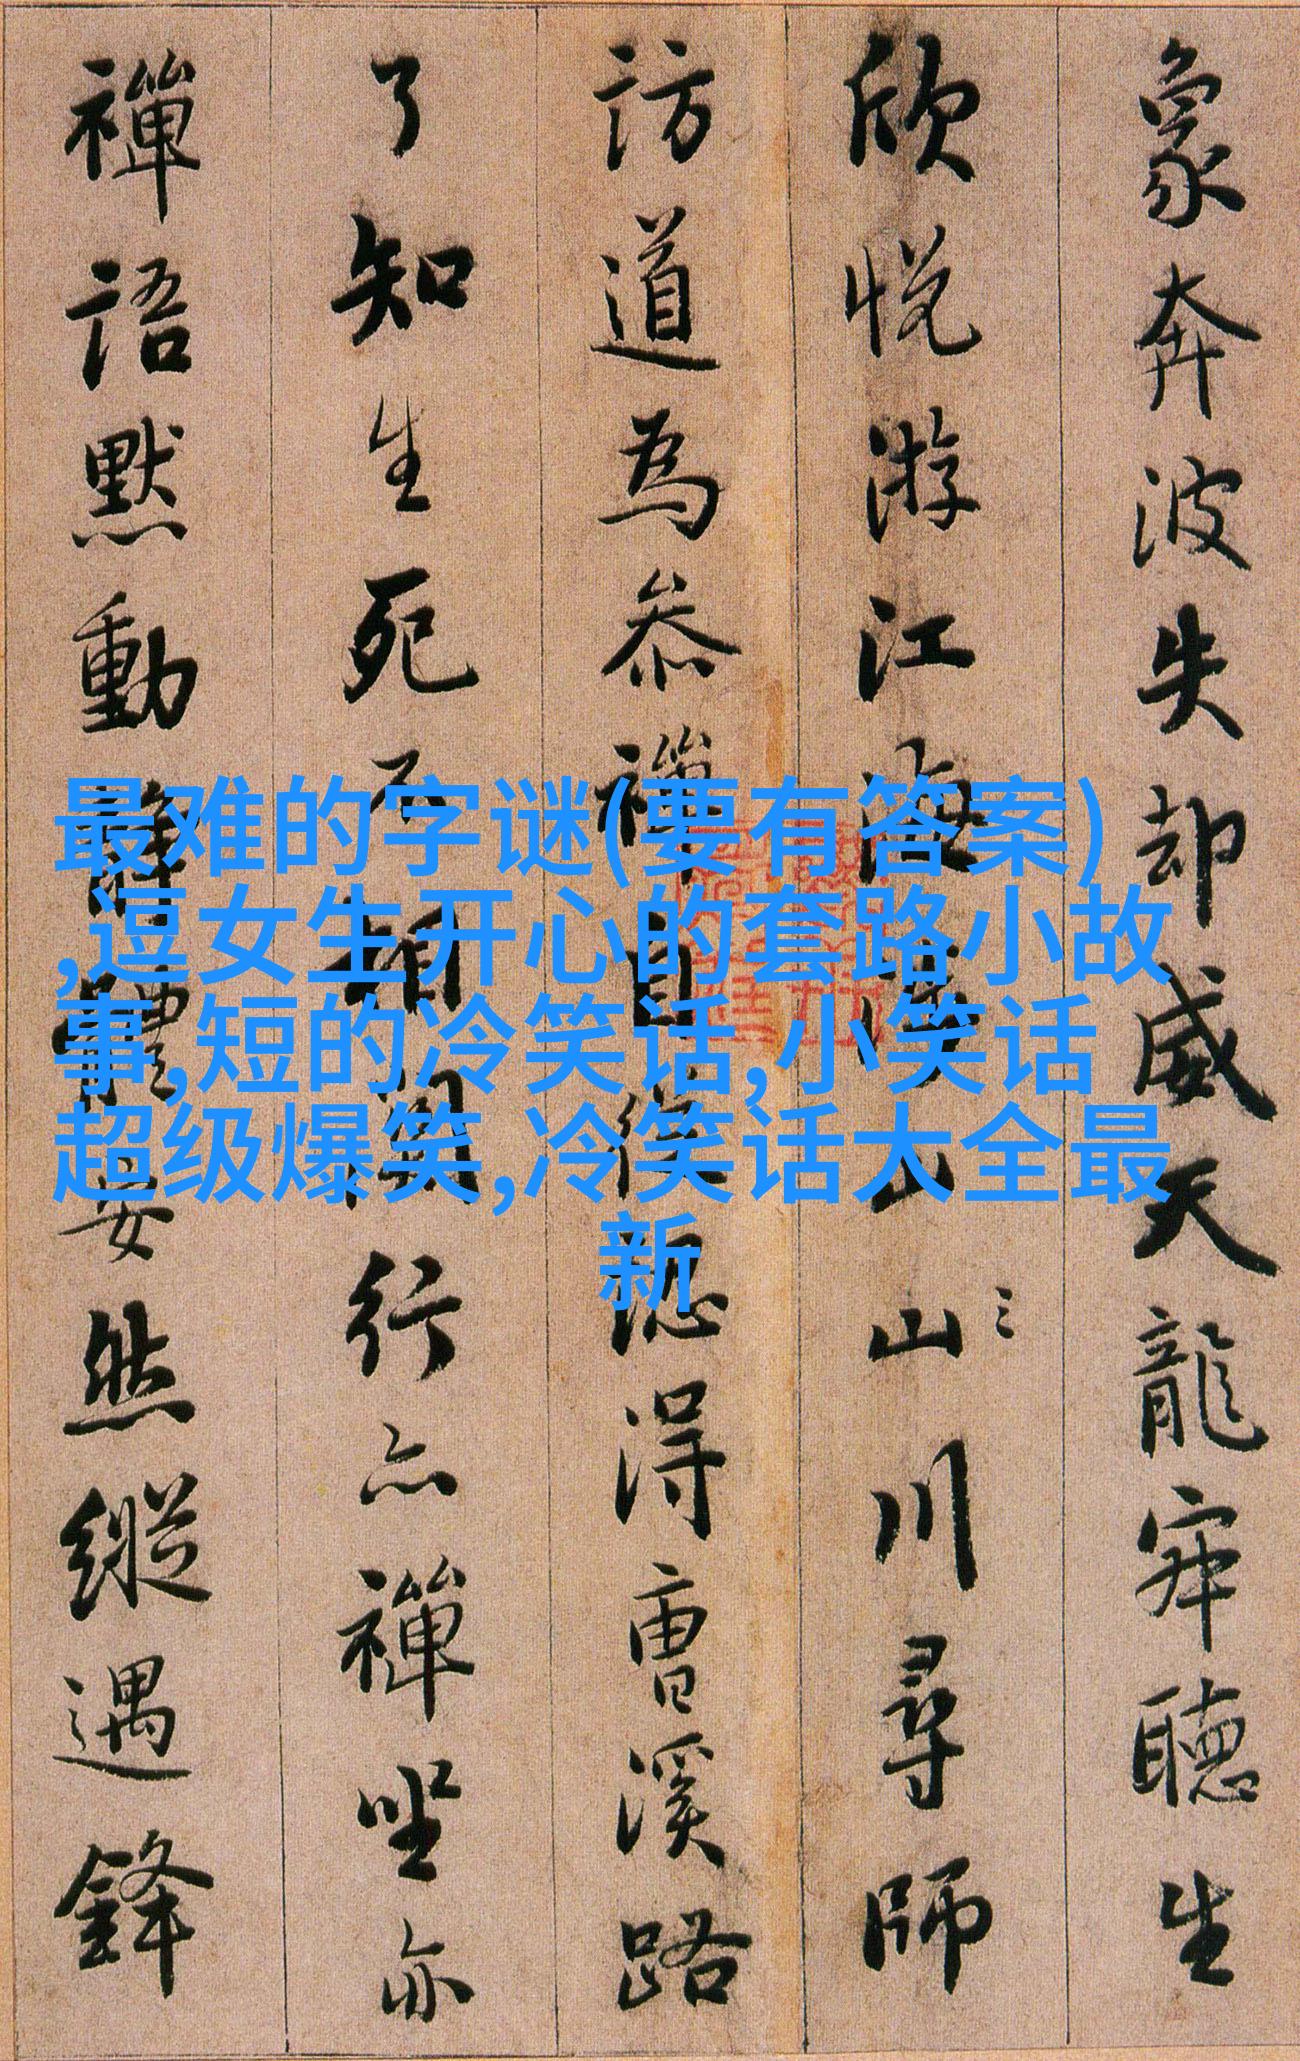 象奔波失却威天龍寂聽生
欣悅游江海涉山山川尋師
訪道為叅禪自從認得曹溪路
了知生死不相關行亦禪坐亦
禪語默動靜體安然縱遇鋒
最难的字谜(要有答案)
,逗女生开心的套路小故
事,短的冷笑话,小笑话
超级爆笑,冷笑话大全最
新